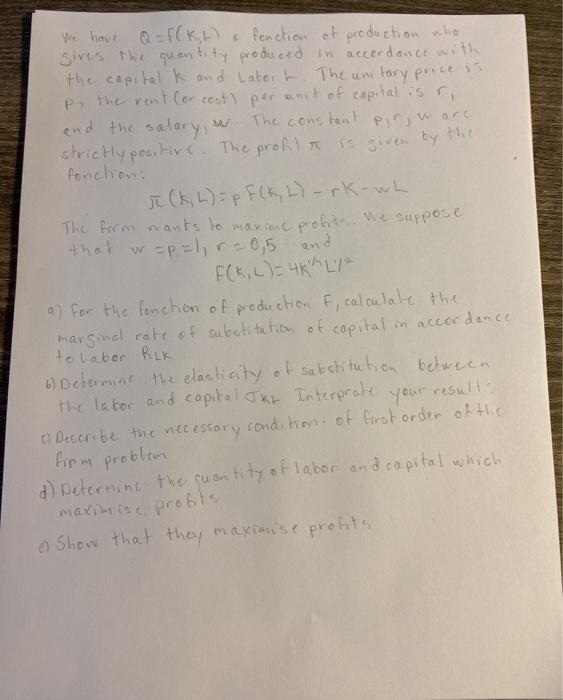 We have Q = F(K,L) a fonction of production who
gives the quantity produced in accordance with
the capital K and Labor L. The unitary price is
p, the rent (or cost) per unit of capital is r,
and the salary, w. The constant p, r, w are
strictly positive. The profit π is given by the
fonction:
π(K,L) = p F(K,L) - rK - wL
The firm wants to maxime profits. We suppose
that w = p = 1, r = 0,5 and
F(K,L) = 4K^1/4 L^1/2
a) For the fonction of production F, calculate the
marginal rate of substitution of capital in accordance
to Labor RLK
b) Determine the elasticity of substitution between
the labor and capital σKL Interprate your result:
c) Describe the necessary condition of first order of the
firm problem
d) Determine the quantity of labor and capital which
maximise profits
e) Show that they maximise profits